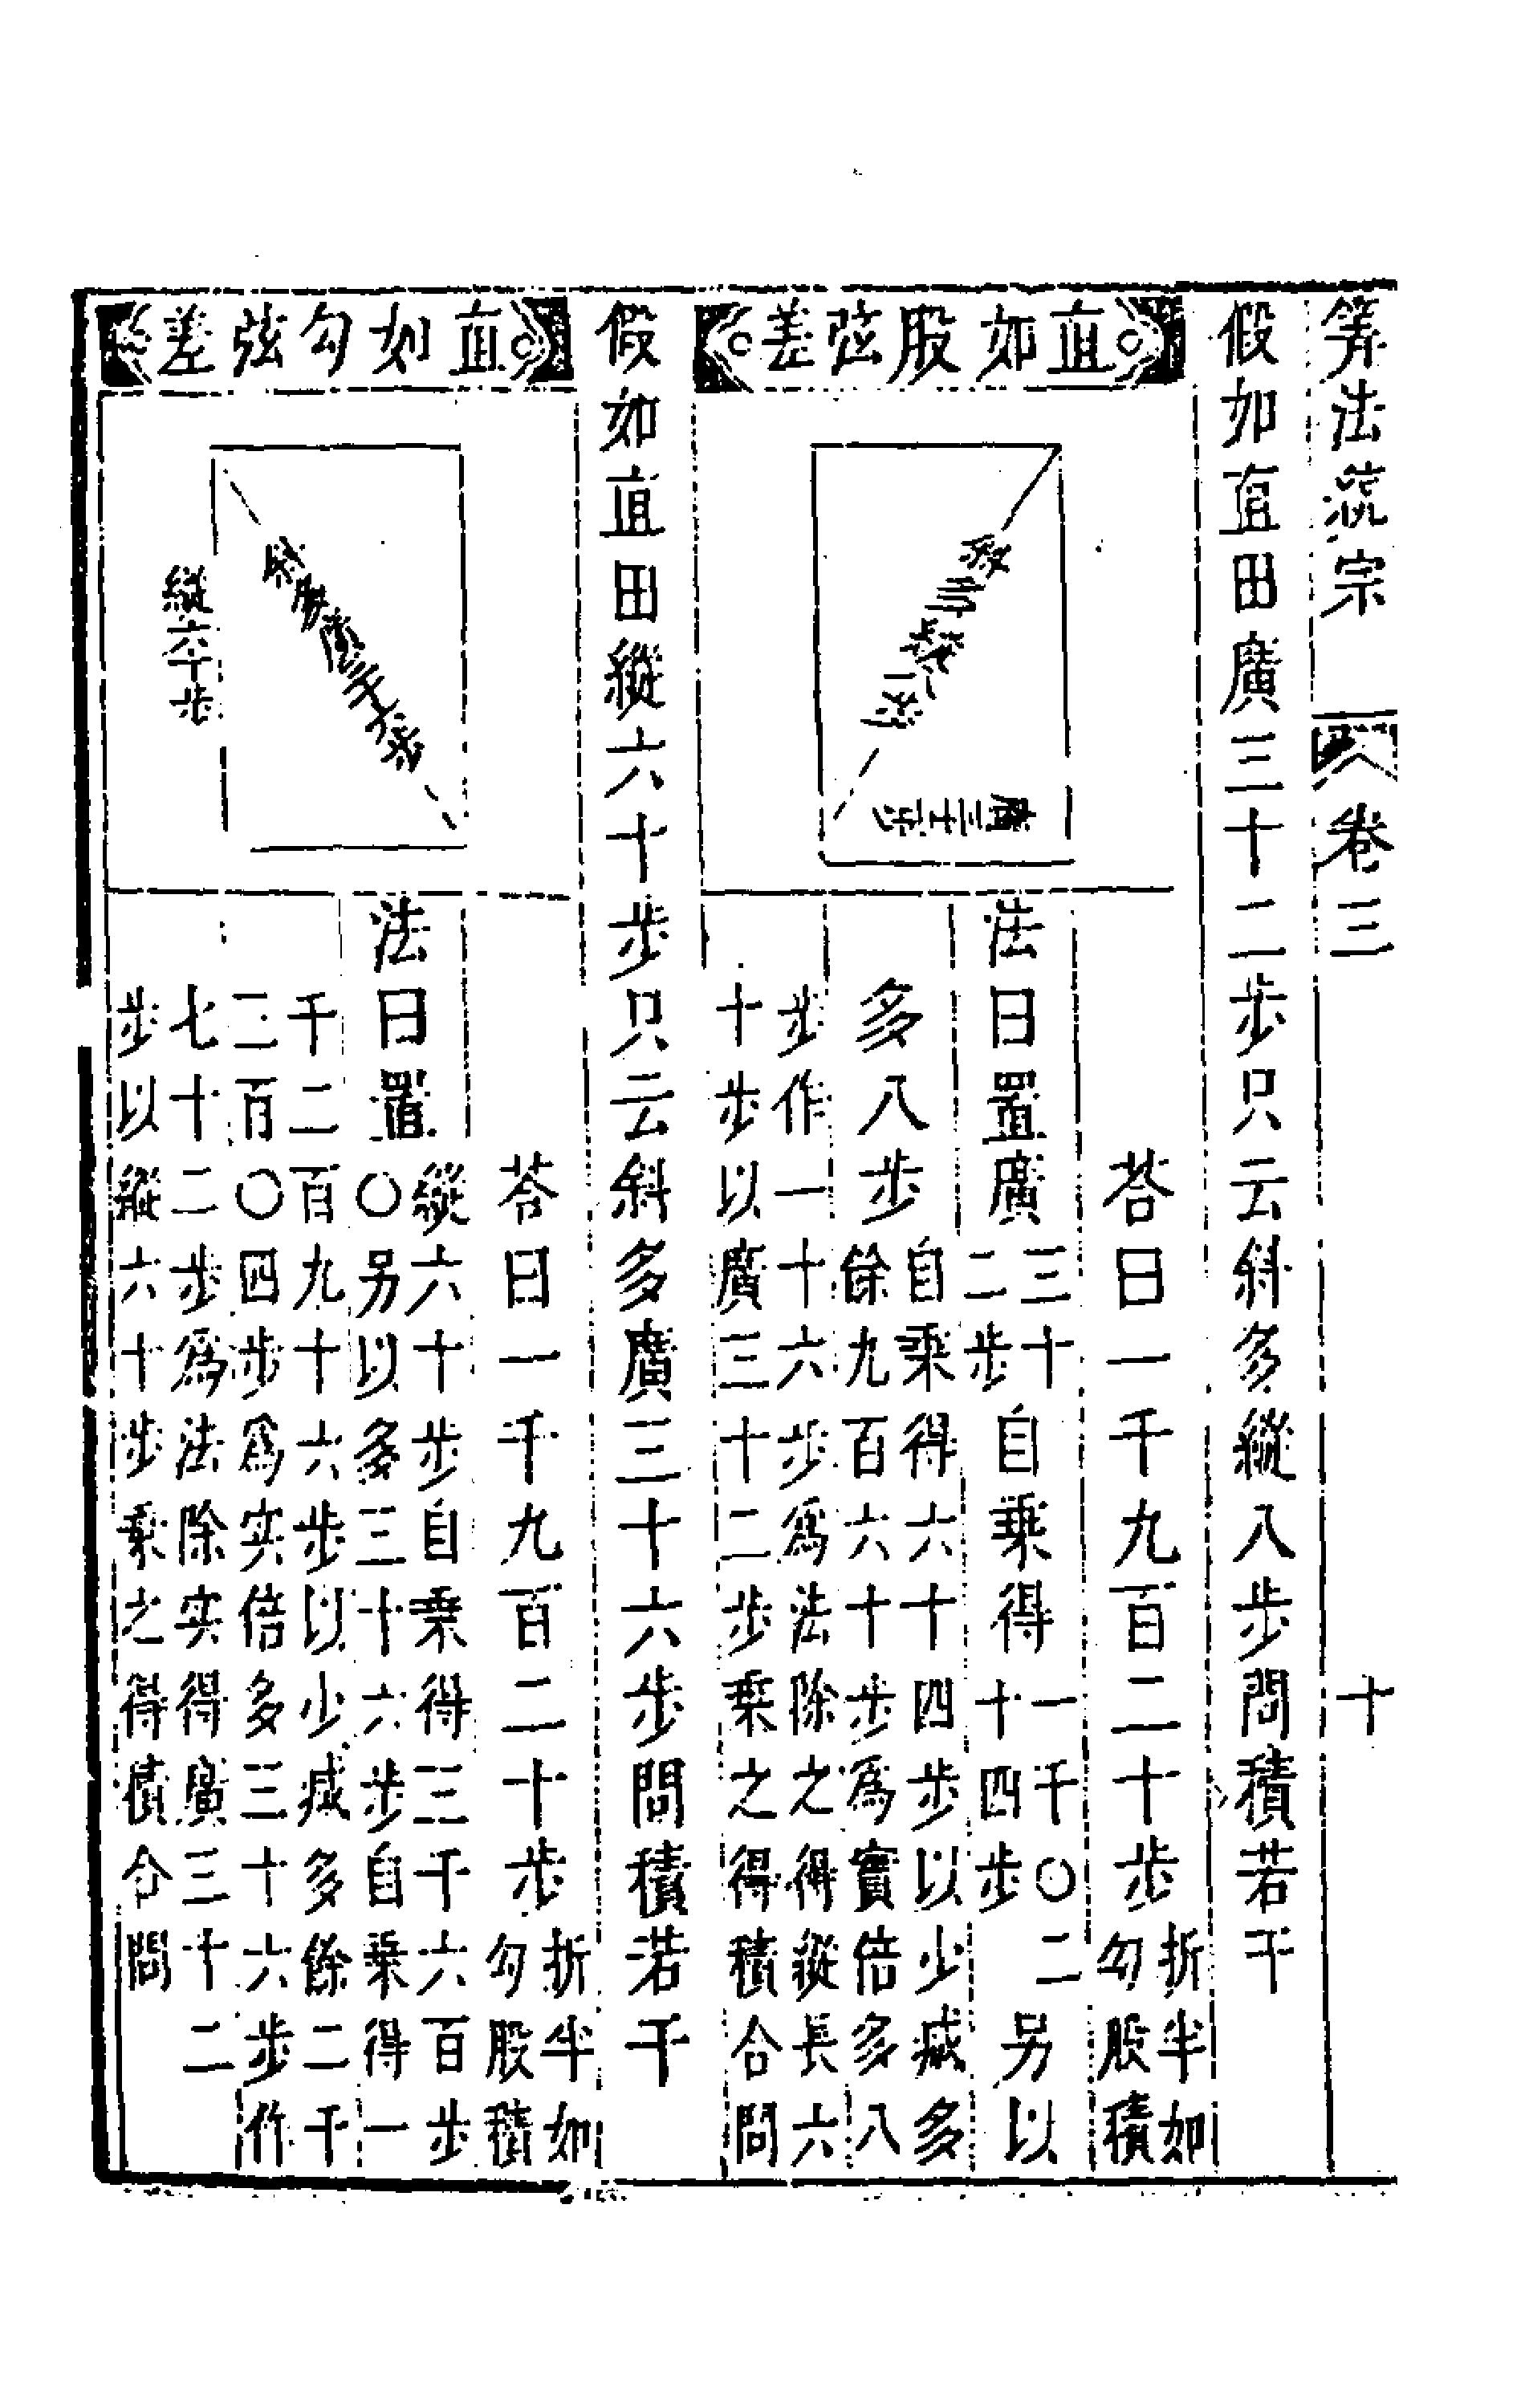 筭法統宗 卷三 十
假如直田廣三十二步只云斜多縱八步問積若干
答曰一千九百二十步折半如勾股積
直如股弦差
廣三十二步
法曰置廣三十二步自乘得一千〇二十四步另以
多八步自乘得六十四步以少减多餘九百六十步為實倍多八
步作一十六步為法除之得縱長六
十步以廣三十二步乘之得積合問
假如直田縱六十步只云斜多廣三十六步問積若干
答曰一千九百二十步折半如勾股積
直如勾弦差
斜多廣三十六步
縱六十步
法曰置縱六十步自乘得三千六百步〇另以多三十六步自乘得一
千二百九十六步以少减多餘二千
三百〇四步為实倍多三十六步作
七十二步為法除实得廣三十二
步以縱六十步乘之得積合問